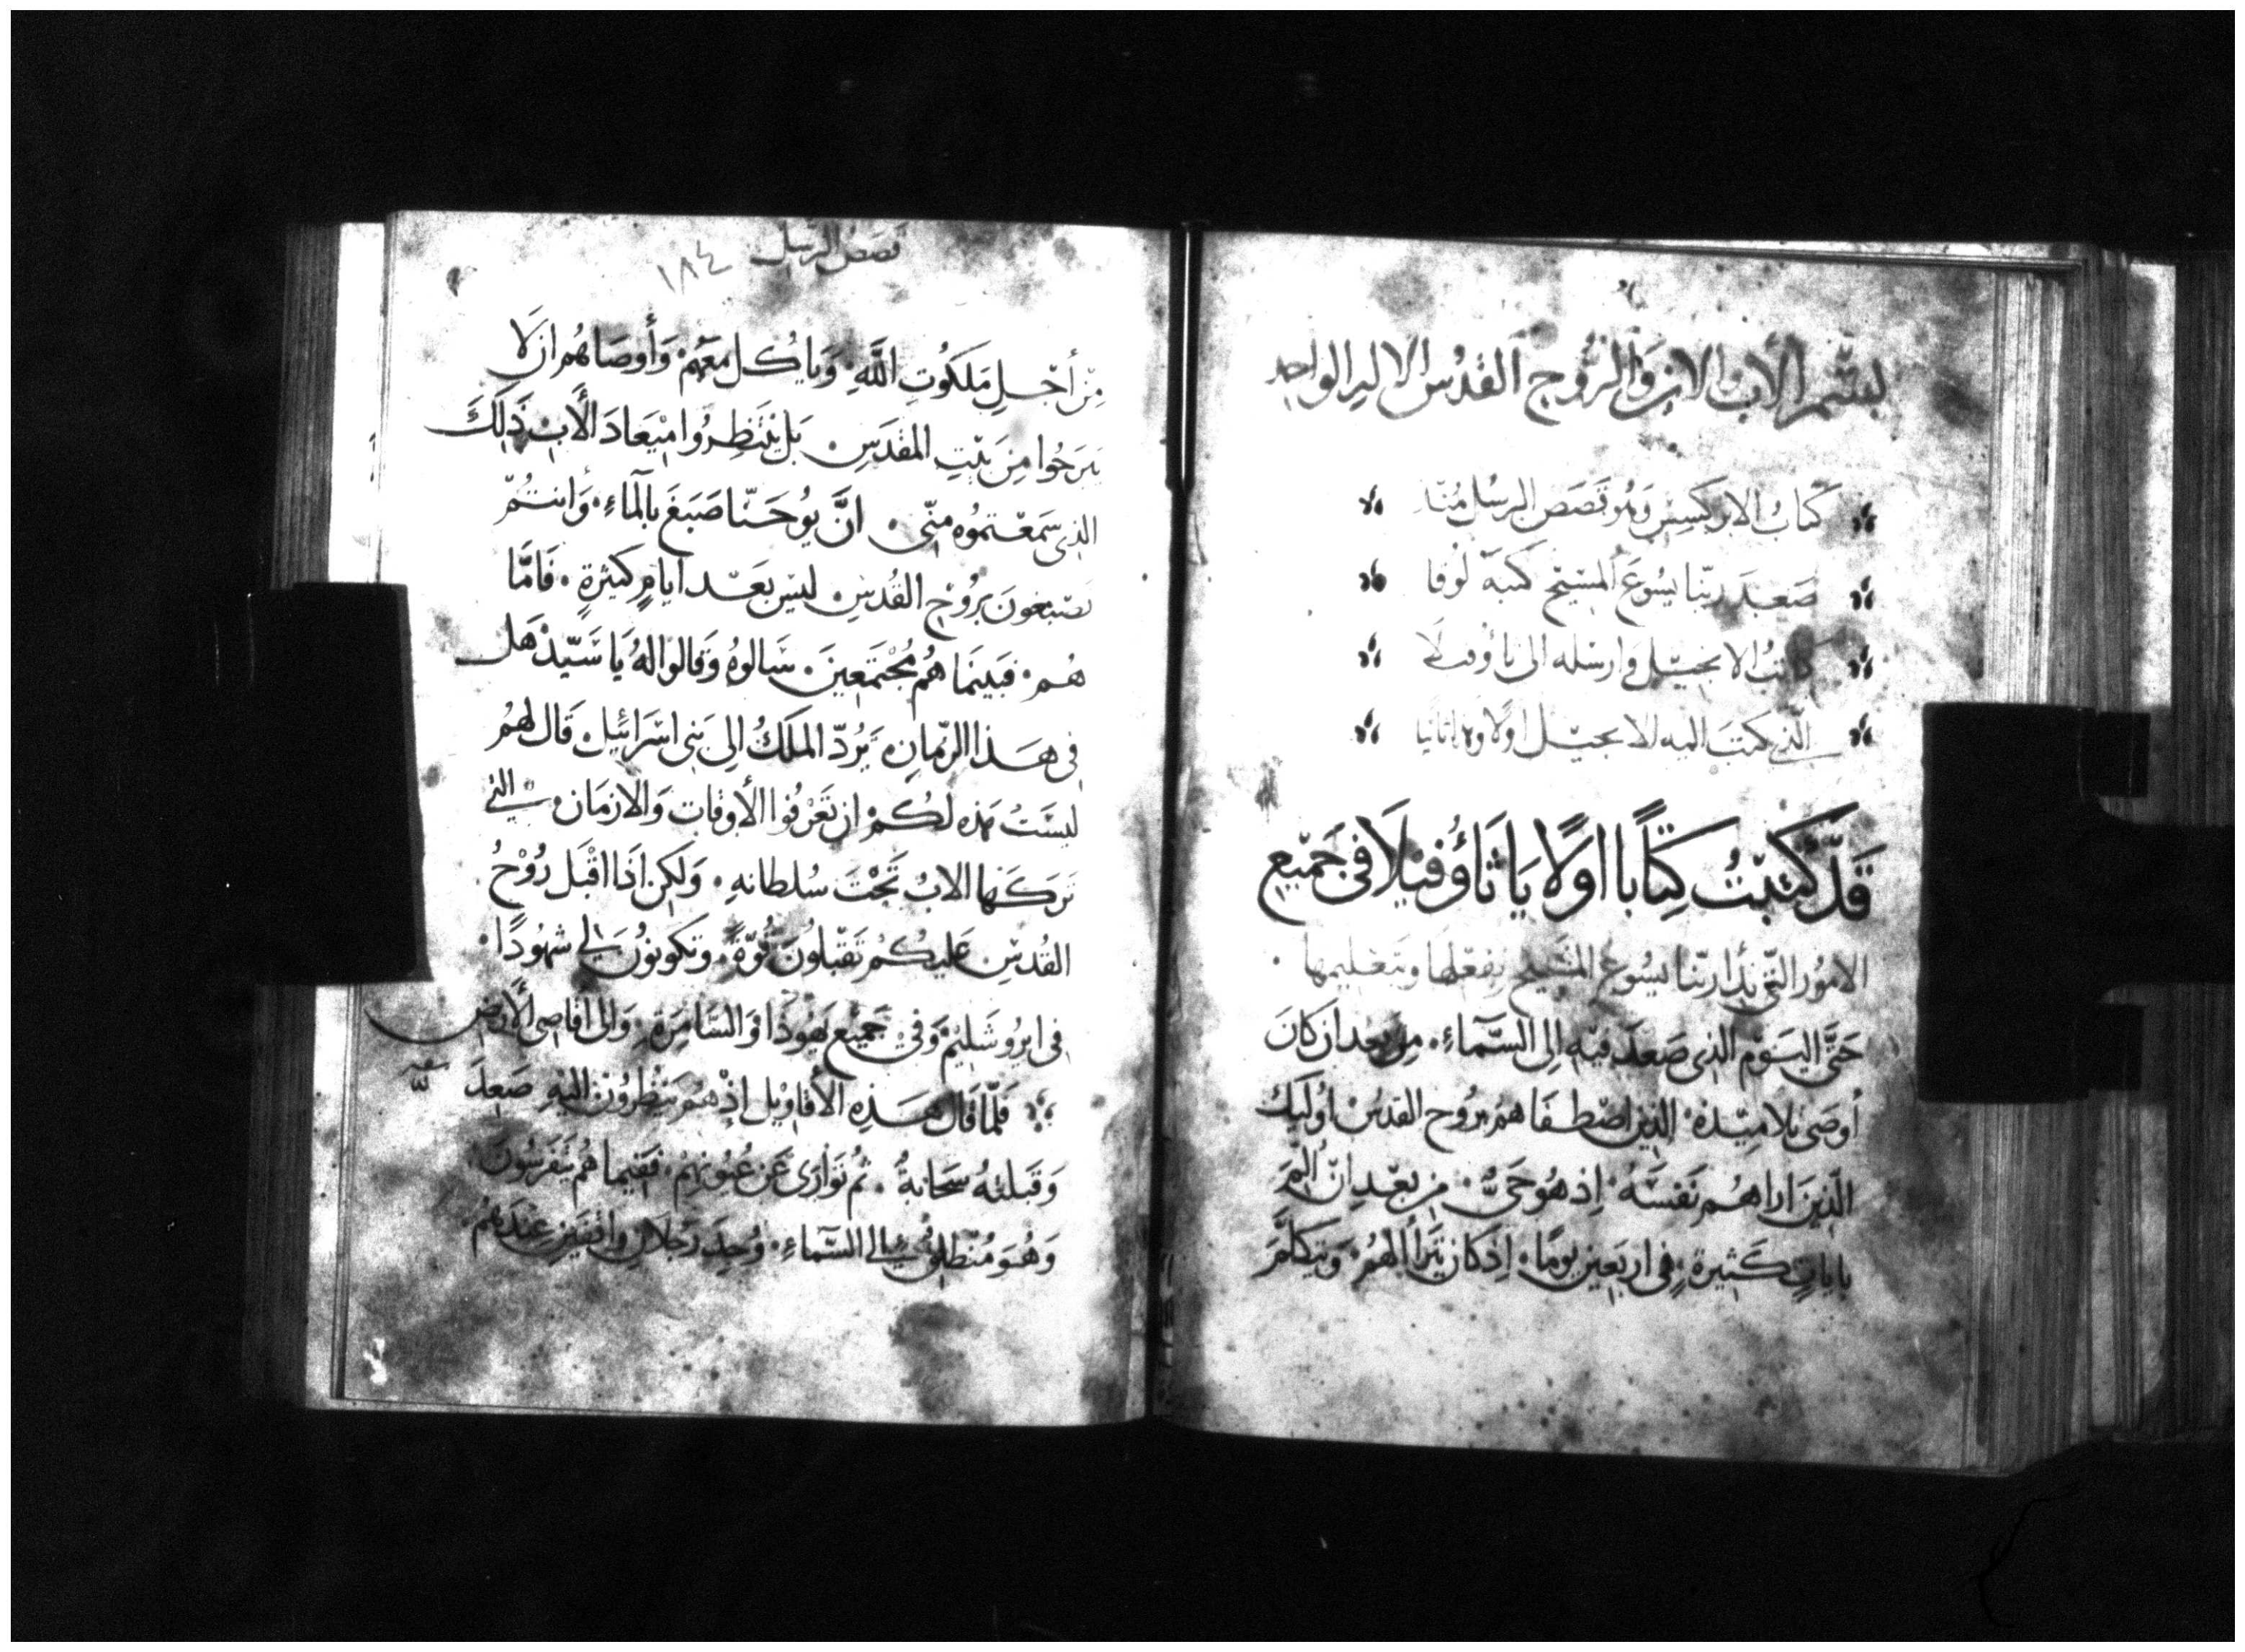 بِسْمِ الأب والابن وَالرُّوح القدُس الاله الواحد
كتابُ الابركسيس وَهُو قَصَص الرسُل مُنذ
صَعِدَ ربّنا يسُوعَ المسِيح كتبهُ لوُقا
كاتبُ الانجيل وارسله الى ثاؤفيلا
الّذي كتبَ اليه الانجيل اولا وهذا ثانيا
قَدْ كَتَبْتُ كِتَابًا اوَلًا يَا ثَاؤُفيلَا فى جَمْيع
الامُور التّى بَدأ ربّنا يسُوعُ المَسيح بفعلها وتعليمها
حَتَّى اليَوْم الذى صَعِدَ فيْهِ الِى السَّمَاءِ مِن بعد ان كانَ
أوصَى تلاميْذهُ الذين اصْطفَاهُم بروُح القدُس اوُليك
الّذينَ اراهُم نَفسَهُ اذ هُو حَىٌّ من بعْد انْ المَ
باياتٍ كَثيرةٍ فى اربَعين يومًا اذ كان يَتَرأا لهُم وَيتكلّمَ
قصَصُ الرسل ١٨٤
مِنْ أجْلِ مَلَكُوتِ اللَّهِ وَياكُل معَهُمْ وَأوصَاهُم ان لا
يبرَحُوا مِن بيْتِ المقدَسِ بَل ينتَظِرُوا مِيْعادَ الأب ذَلِكَ
الذى سَمعْتمُوه منّى انَّ يوُحَنّا صَبَغَ بالمآءِ وَانتُمْ
تصْبَغونَ برُوْحِ القُدسِ ليسَ بعَد ايامٍ كثيرةٍ فَامَّا
هُم فبَينَمَا هُم مُجْتَمَعينَ سَالوهُ وَقالوا لهُ يَا سَيّد هَل
فى هذا الزمانِ يَرُدّ المَلكُ الِى بَنى اسْرَائيل قَال لهُم
ليسَتْ هَذه لكُم ان تَعْرفُوا الأوقات وَالازمَان التى
تَركهَا الابُ تَحْتَ سُلطانهِ وَلكِن اذَا اقْبَل رُوْحُ
القُدسْ عَليكُمْ تَقْبَلوُن قُوّةً وتكونُونُ لى شهُودًا
فى ايروُشَليْم وَفى جَميْع يَهُوذا وَالسَّامِرَةِ وَالى اقاصى الأرض
فَلمّا قال هَذِهِ الأقاوِيْل اذْ هُم يَنظُرونَ اليْهِ صَعِدَ
وَقَبَلتهُ سَحَابةُ ثُم تَوَارى عَن عُيُونهِمْ فَفيما هُم يَتَفرسُونَ
وَهُوَ مُنْطلقُ الى السَّماءِ وُجِدَ رَجُلانِ واقفين عِندَهُم